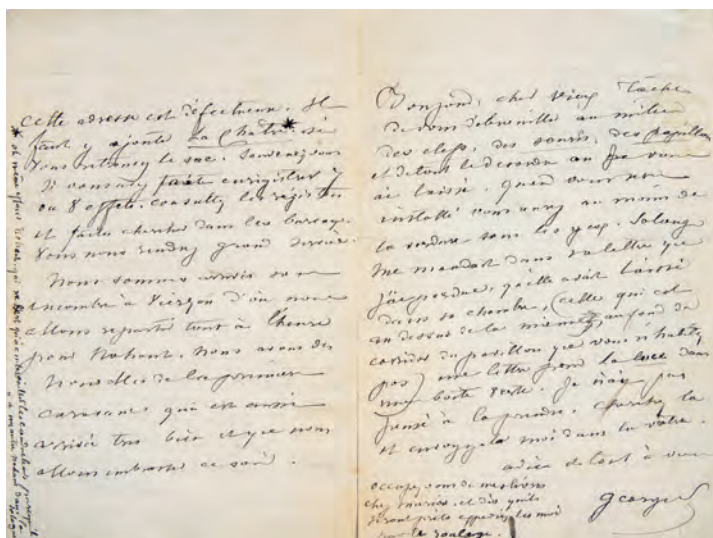 cette adresse est défectueuse. Il
faut y ajouter La Châtre* si
vous retrouvez le sac. Souvenez vous
si vous avez fait enregistrer 7
ou 8 effets. consultez les régistres
et faites chercher dans les bureaux.
Vous nous rendrez grand service.
Nous sommes arrivés sans
encombre à Vierzon d'où nous
allons repartir tout à l'heure
pour Nohant. Nous avons des
nouvelles de la première
caravane qui est aussi
arrivée très bien et que nous
allons embrasser ce soir.
*
Bonjour, cher vieux. Tâchez
de vous débrouiller au milieu
des clefs, des souris, des papillons
et de tout le désordre au je vous
ai laissé. Quand vous serez
installé vous aurez au moins de
la verdure sous les yeux. Solange
me mandait dans sa lettre que
j'ai perdue, qu'elle avait laissé
dans sa chambre, (celle qui est
au dessus de la mienne, au fond du
corridor du pavillon que vous n'habitez
pas) une lettre pour la dans
une boite verte. Je n'ai pas
pensé à la prendre. cherchez la
et envoyez la moi dans la vôtre.
adieu de tout à vous
George
occupez vous de mes livres
chez et dès qu'ils
seront prêts expédiez les moi
par le roulage.